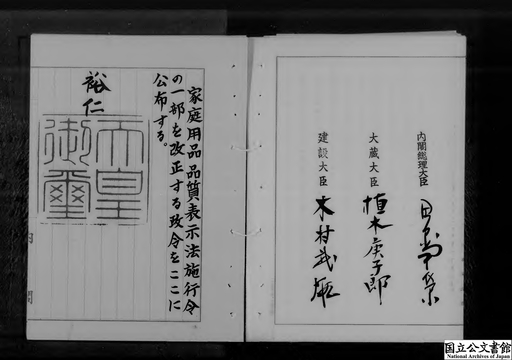 内閣総理大臣 田中角榮
大蔵大臣 植木庚子郎
建設大臣 木村武雄
家庭用品品質表示法施行令
の一部を改正する政令をここに
公布する。
裕仁
天皇
御璽
内閣
国立公文書館
National Archives of Japan